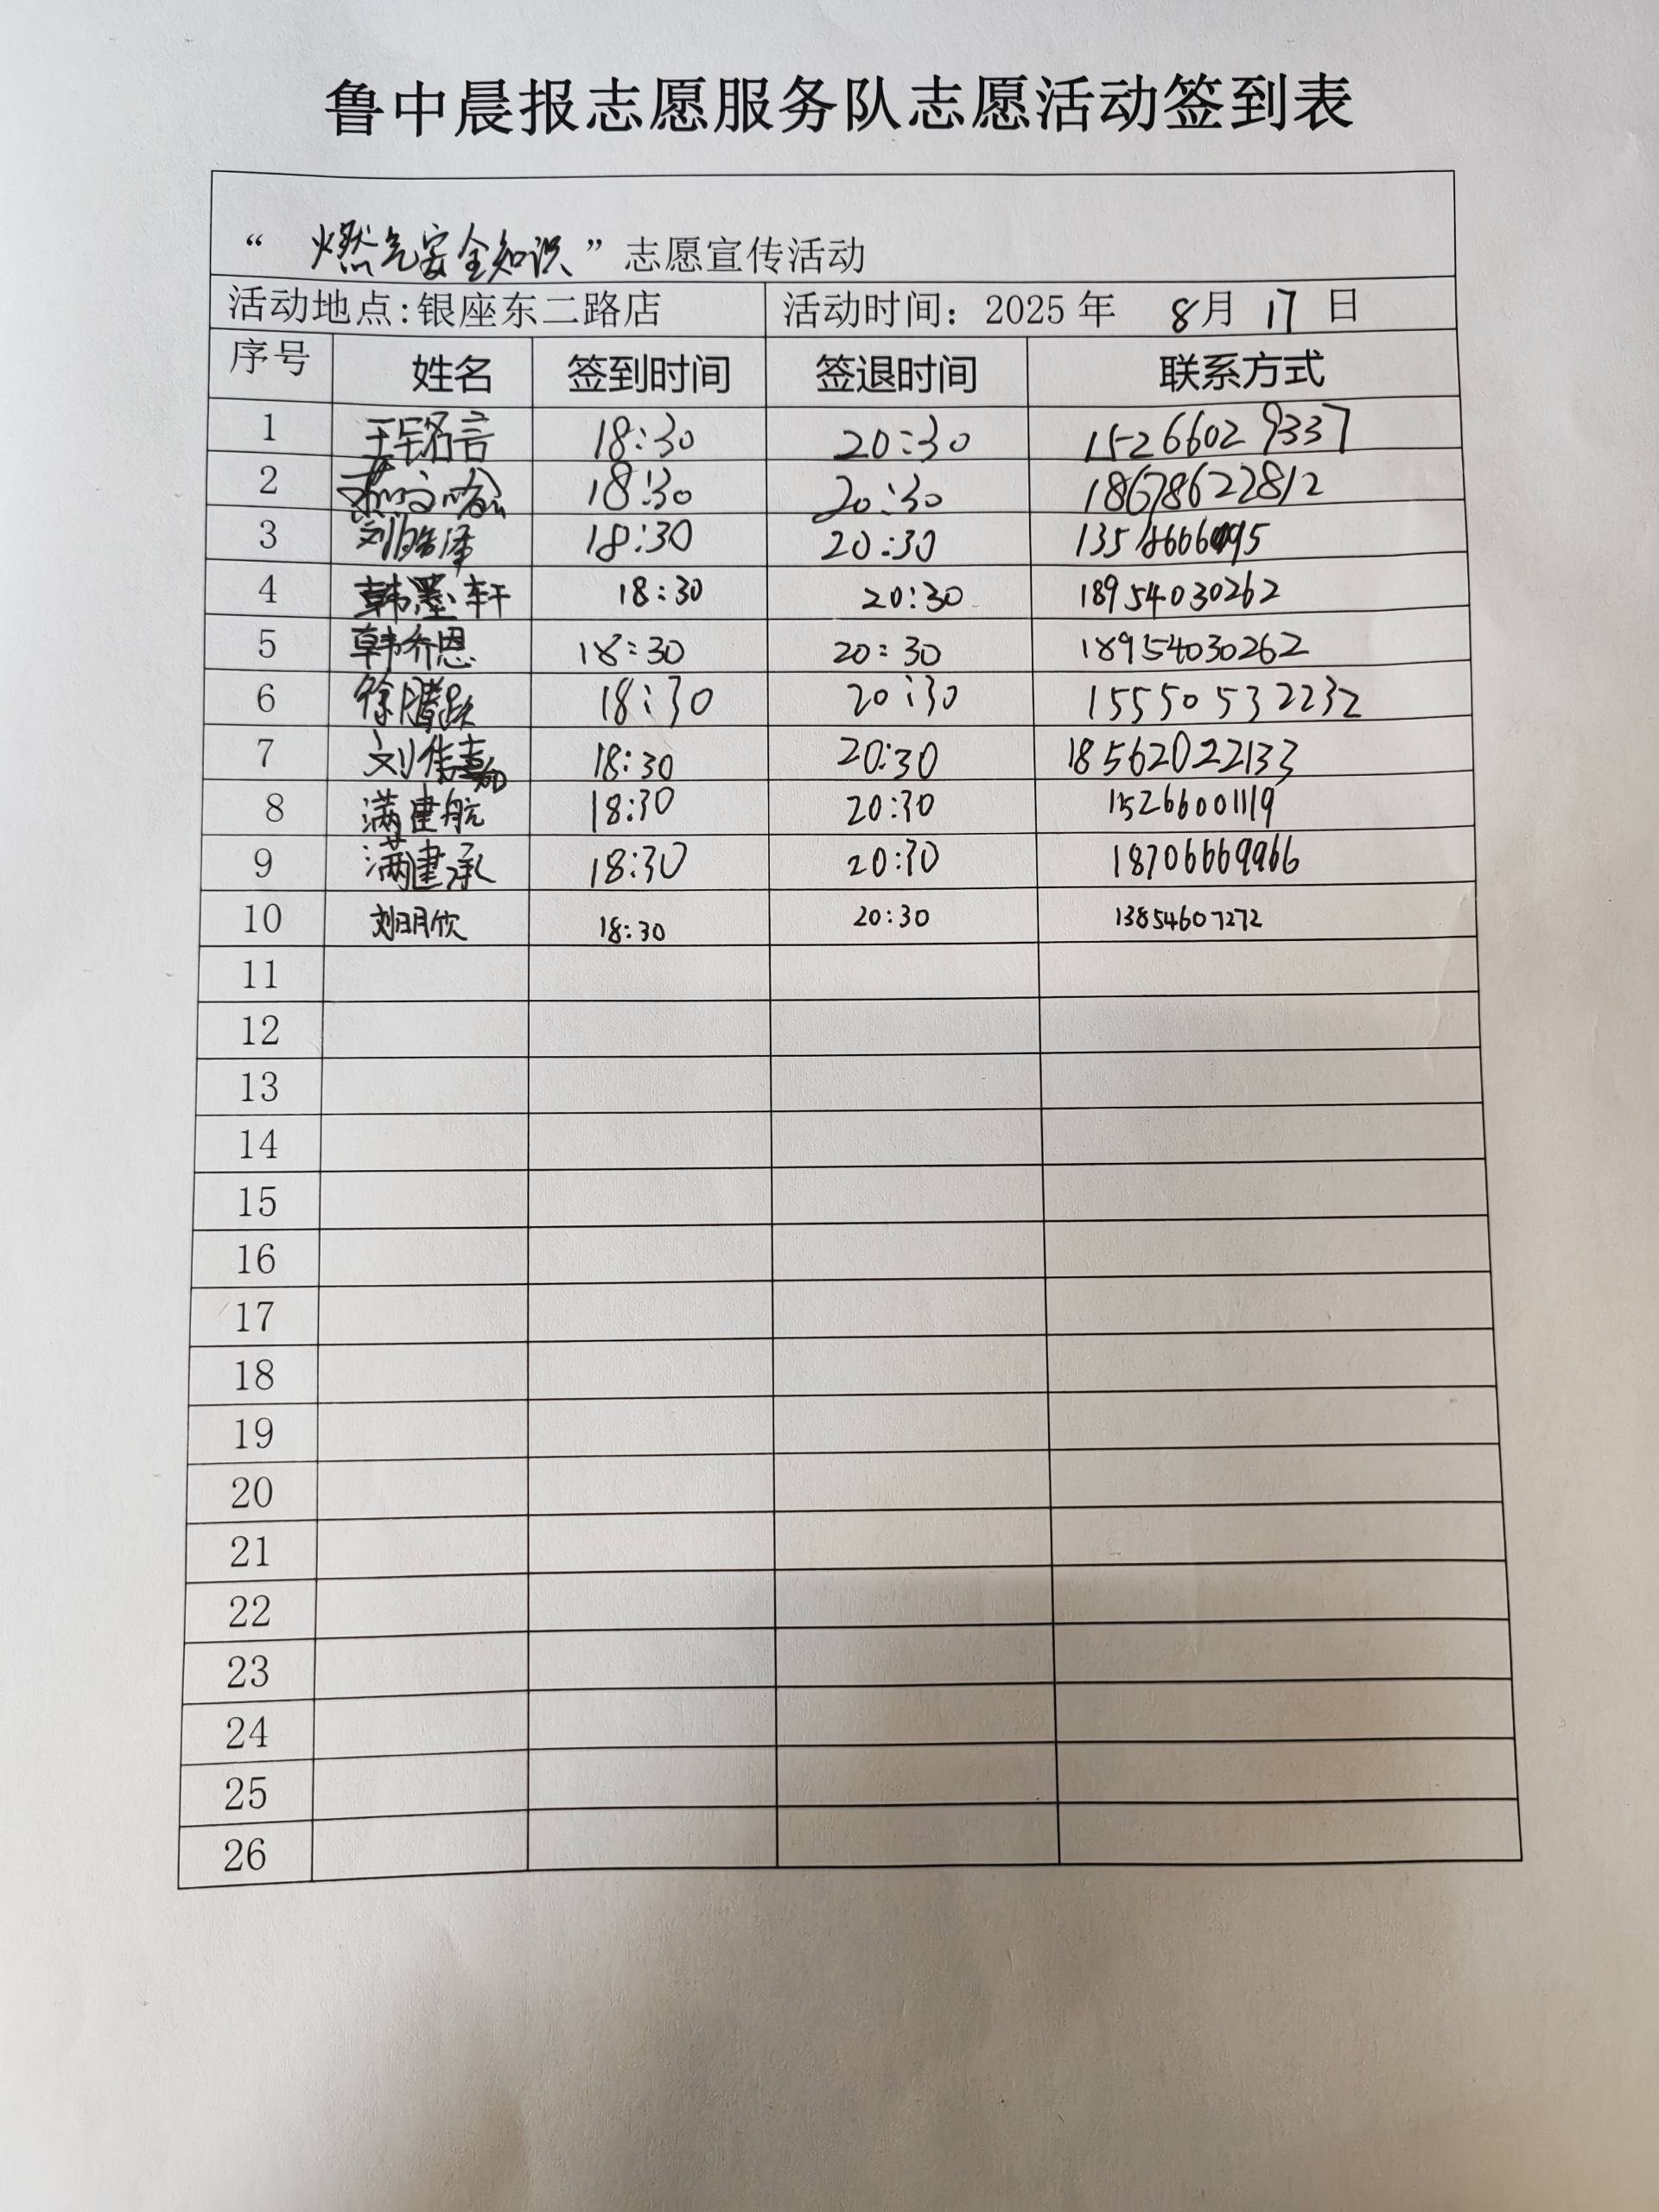 鲁中晨报志愿服务队志愿活动签到表
“ 燃气安全知识 ”志愿宣传活动
活动地点:银座东二路店 活动时间：2025年 8月 17 日
序号 姓名 签到时间 签退时间 联系方式
1 18:30 20:30 15266029337
2 18:30 20:30 18678622812
3 刘皓泽 18:30 20:30
4 韩墨轩 18:30 20:30 18954030262
5 韩乔恩 18:30 20:30 18954030262
6 徐腾跃 18:30 20:30 15550532232
7 18:30 20:30 18562022133
8 满建航 18:30 20:30 15266001119
9 满建承 18:30 20:30 18706669966
10 刘玥欣 18:30 20:30 13854607272
11
12
13
14
15
16
17
18
19
20
21
22
23
24
25
26